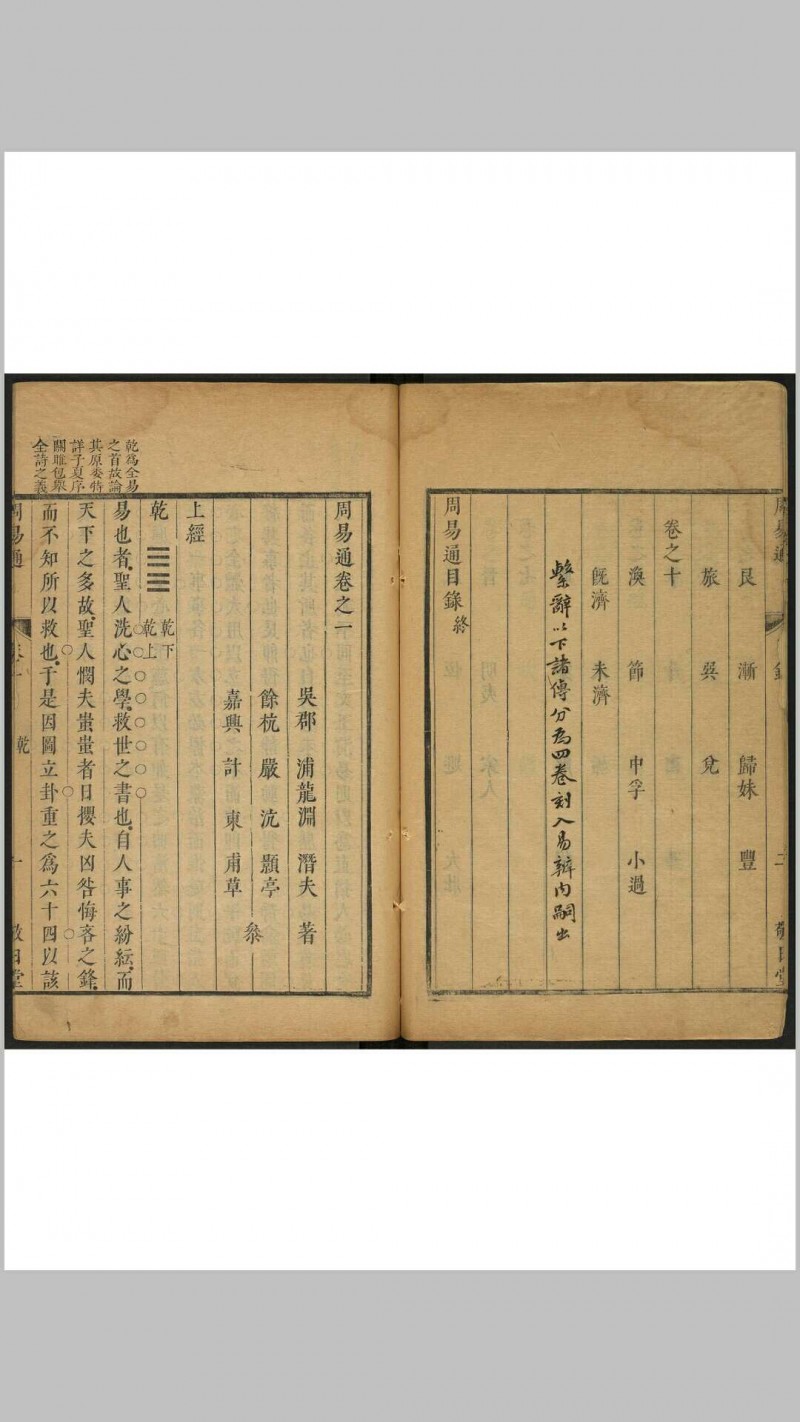 艮 漸 歸妹 豐
旅 巽 兌
卷之十
渙 節 中孚 小過
旣濟 未濟
繫辭以下諸傳分為四卷刻入易辨内嗣出
周易通目錄終
周易通卷之一
吳郡 浦龍淵 潛夫 著
餘杭 嚴 沆 顥亭
嘉興 計 東 甫草
叅
上經
乾 乾下
乾上
乾為全易
之首故論
其原委特
詳子夏序
關雎包舉
全詩之義
易也者聖人洗心之學救世之書也自人事之紛紜而
天下之多故聖人憫夫蚩蚩者日攖夫凶咎悔吝之鋒
而不知所以救也于是因圖立卦重之為六十四以該
周易通 乾 一